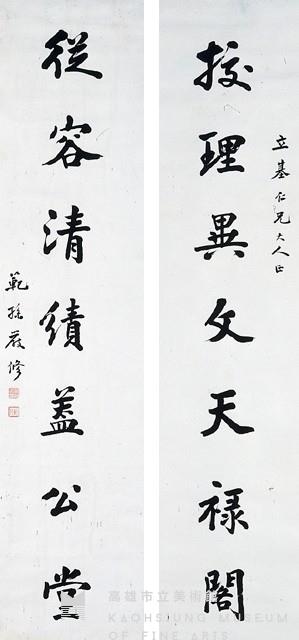 立基仁兄大人正
挍理異文天禄閣
從容清績蓋公堂
範孫嚴修
高雄市立美術館
KAOHSIUNG MUSEUM
OF FINE ARTS